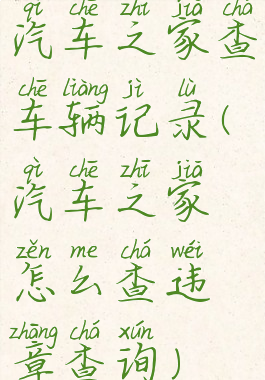 qì chē zhī jiā chá
汽车之家查
chē liàng jì lù
车辆记录(
qì chē zhī jiā
汽车之家
zěn me chá wéi
怎么查违
zhāng chá xún
章查询)